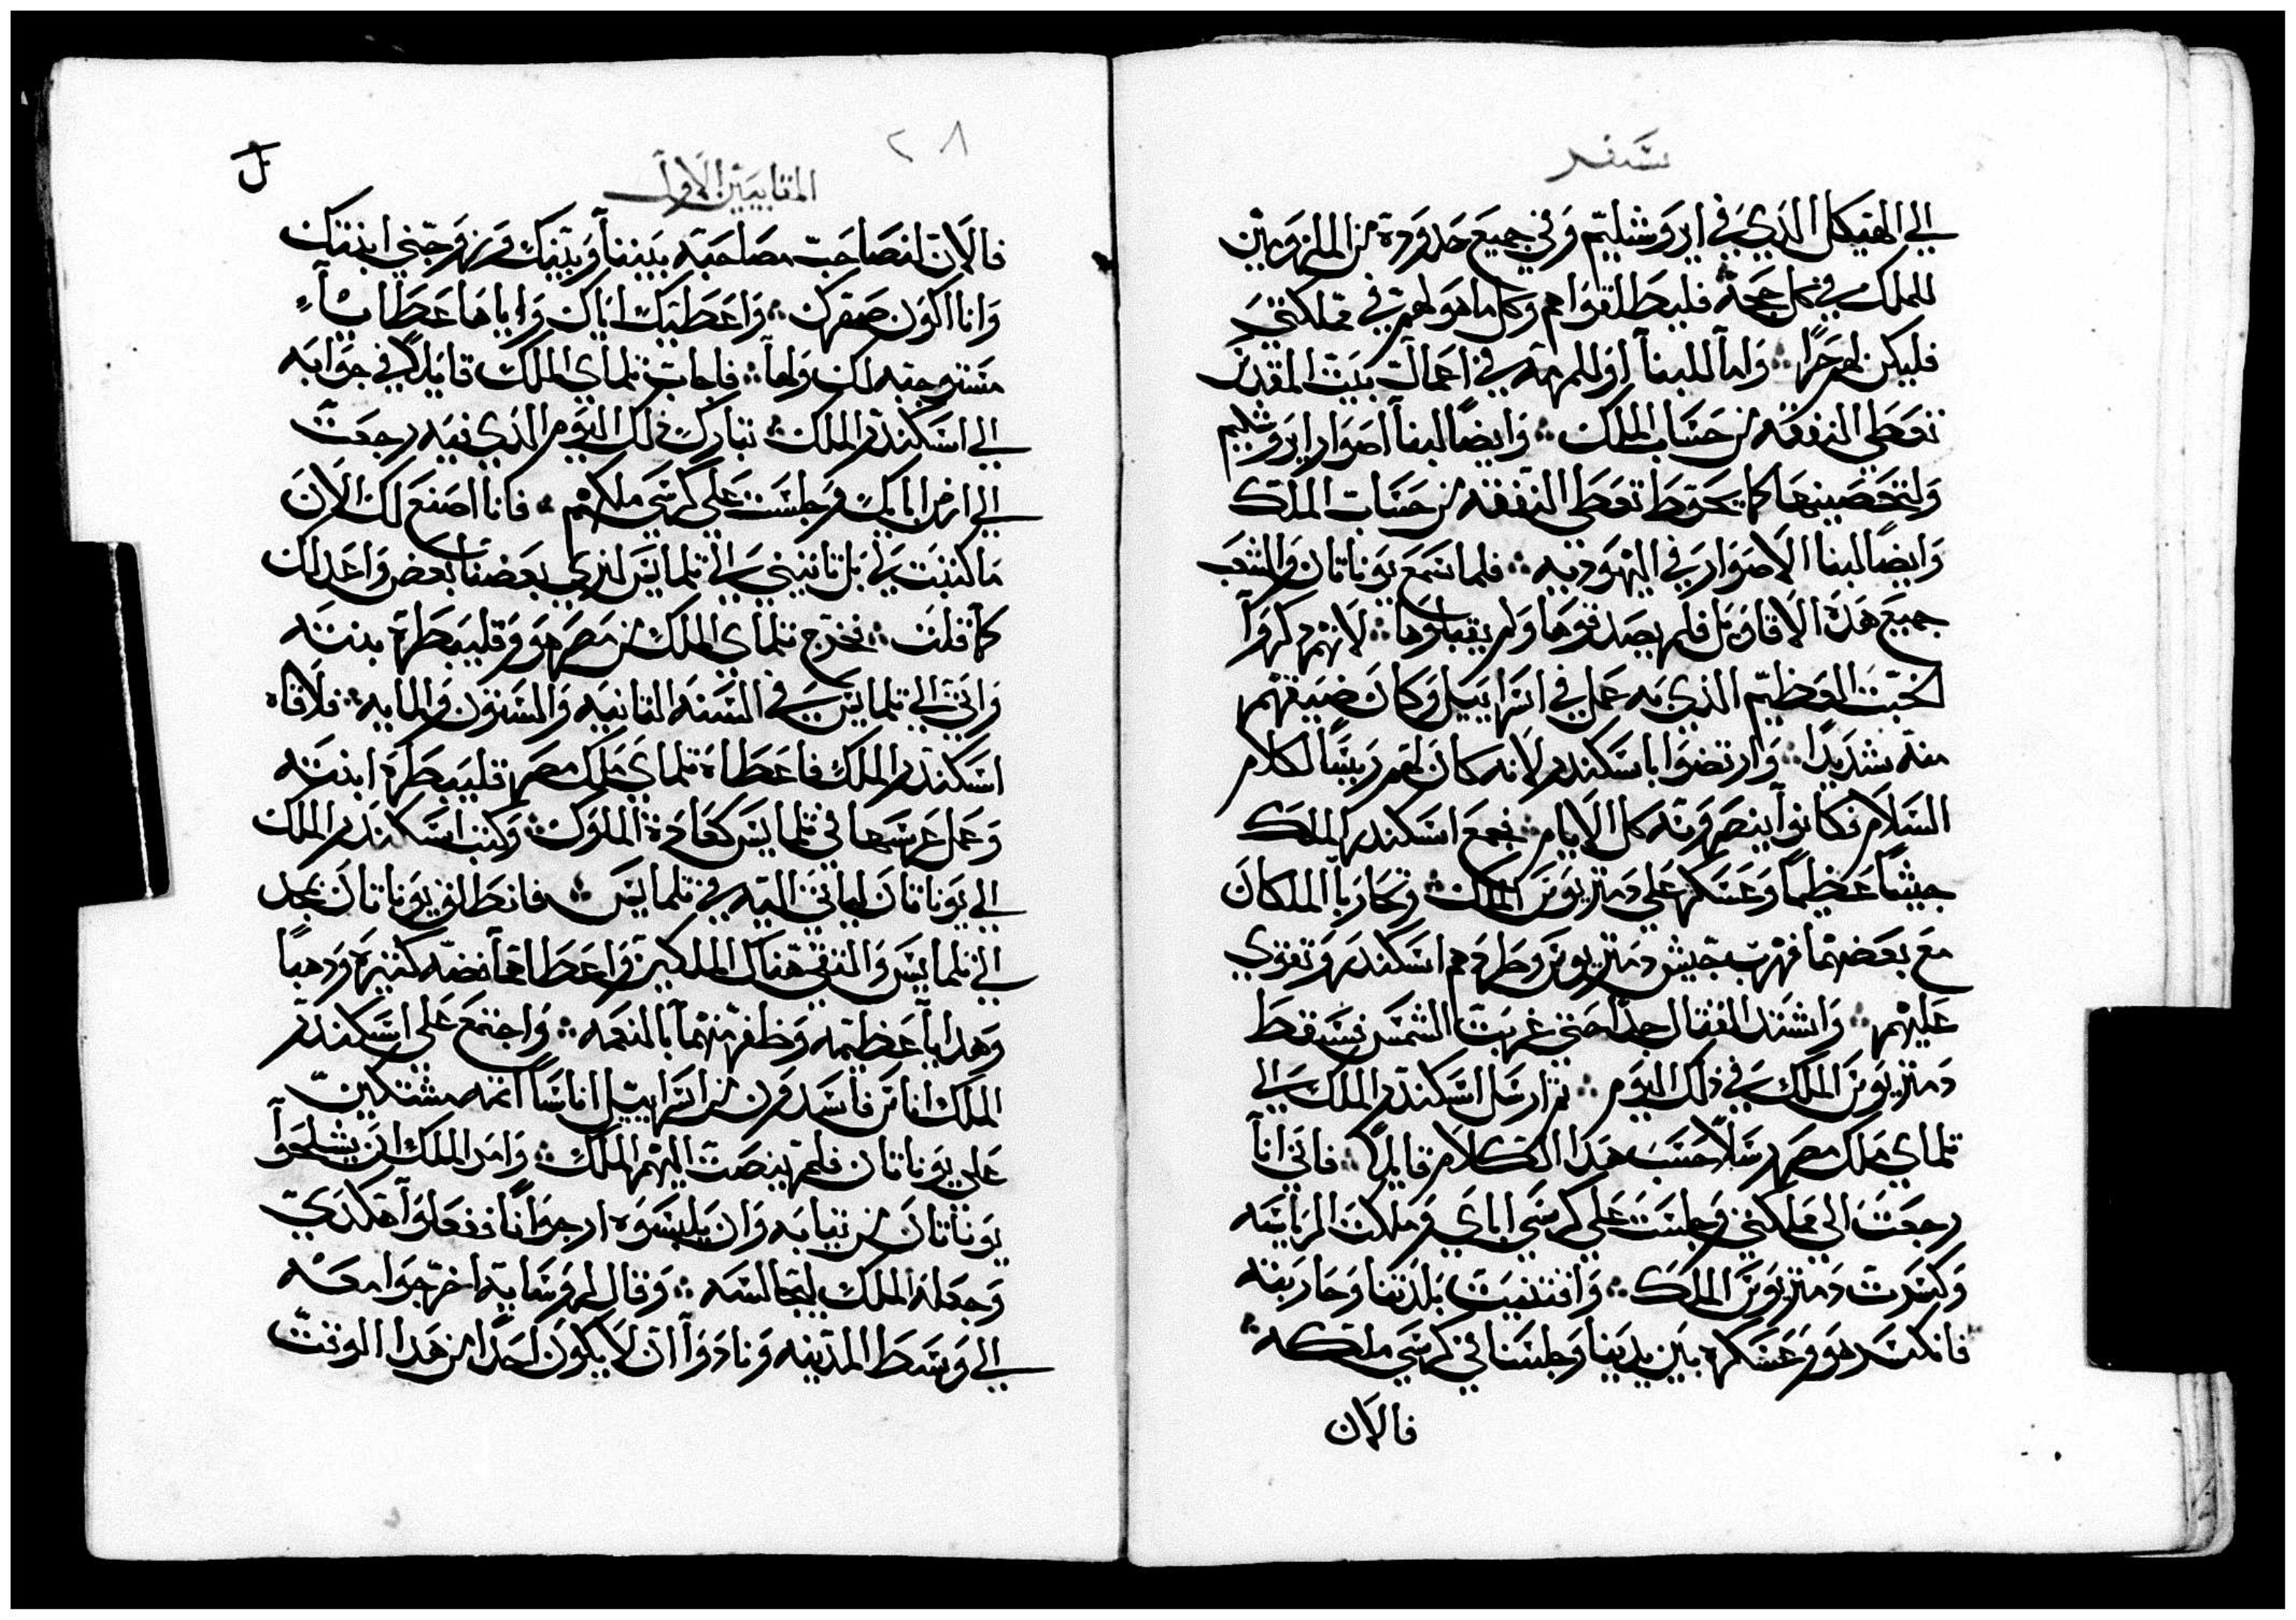 سفر
الي الهيكل الذي في ايروشليم وفي جميع حدوده من الملزومين
للملك في كل حجه فليطلقوا هم وكل ما هو لهم في مملكتي
فليكن لهم حرا ؞ واما للبنا او للمرمه في اعمال بيت المقدس
تعطي النفقه من حساب الملك ؞ وايضا لبنا اصوار ايروشليم
ولتحصينها كما يحوط تعطي النفقه من حساب الملك
وايضا لبنا الاصوار في اليهوديه ؞ فلما سمع يوناتان والشعب
جميع هذه الاقاويل فلم يصدقوها ولم يقبلوها ؞ لانهم ذكروا
الخبث العظيم الذي عمل في اسراييل وكان ضيقهم
منه شديدا ؞ وارتضوا باسكندر لانه كان لهم رييسا لكلام
السلام فكانوا ينصرونه كل الايام ؞ فجمع اسكندر الملك
جيشا عظيما وعسكر علي دمتريوس الملك ؞ وتحاربا الملكان
مع بعضهما فهرب جيش دمتريوس وطردهم اسكندر وتقوي
عليهم ؞ واشتد القتال جدا حتي غربت الشمس فسقط
دمتريوس الملك في ذلك اليوم ؞ ثم ارسل اسكندر الملك الي
تلماي ملك مصر رسلا حسب هذا الكلام قايلا ؞ فاني انا
رجعت الي مملكتي وجلست علي كرسي اباي وملكت الرياسه
وكسرت دمتريوس الملك ؞ وافتنيت بلدتنا وحاربته
فانكسر هو وعسكره بين يدينا وجلسنا في كرسي ملكه ؞
فالان
٢٨
المقابيين الاول
فالان لنصاحب مصاحبه بيننا وبينك وزوجني ابنتك
وانا اكون صهرك ؞ واعطيك اياك واياها عطايا
مستوجبه لك ولها ؞ فاجاب تلماي الملك قايلا في جوابه
الي اسكندر الملك ؞ تبارك ذلك اليوم الذي فيه رجعت
الي ارض اباك وجلست علي كرسي ملكهم ؞ فانا اصنع لك الان
ما كتبت لي بل تاتيني الي تلمايس لنري بعضنا بعض واعد لك
كما قلت ؞ فخرج تلماي الملك من مصر هو وقليبطره بنته
واتي الي تلمايس في السنه الثانيه والستون والمايه ؞ فلاقاه
اسكندر الملك فاعطاه تلماي ملك مصر قليبطره ابنته
وعمل عرسها في تلمايس كعادة الملوك ؞ وكتب اسكندر الملك
الي يوناتان لياتي اليه في تلمايس ؞ فانطلق يوناتان بمجد
الي تلمايس والتقي هناك الملكين واعطاهما فضه كثيره ودهبا
وهدايا عظيمه وظفر منهما بالنعمه ؞ واجتمع علي اسكندر
الملك اناس فاسدون من اسراييل اناسا اثمه مشتكين
علي يوناتان فلم ينصت اليهم الملك ؞ وامر الملك ان يشلحوا
يوناتان من ثيابه وان يلبسوه ارجوانا ففعلوا هكدي
وجعله الملك ليجالسه ؞ وقال لروسايه اخرجوا معه
الي وسط المدينه ونادوا ان لا يكون احدا من هدا الوقت